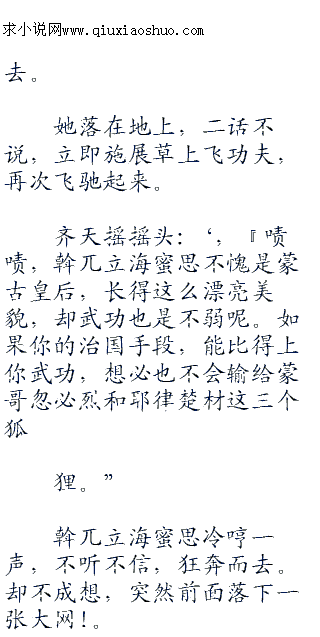 求小说网www.qiuxiaoshuo.com
去。
她落在地上，二话不
说，立即施展草上飞功夫，
再次飞驰起来。
齐天摇摇头：‘，『啧
啧，斡兀立海蜜思不愧是蒙
古皇后，长得这么漂亮美
貌，却武功也是不弱呢。如
果你的治国手段，能比得上
你武功，想必也不会输给蒙
哥忽必烈和耶律楚材这三个
狐
狸。”
斡兀立海蜜思冷哼一
声，不听不信，狂奔而去。
却不成想，突然前面落下一
张大网!。